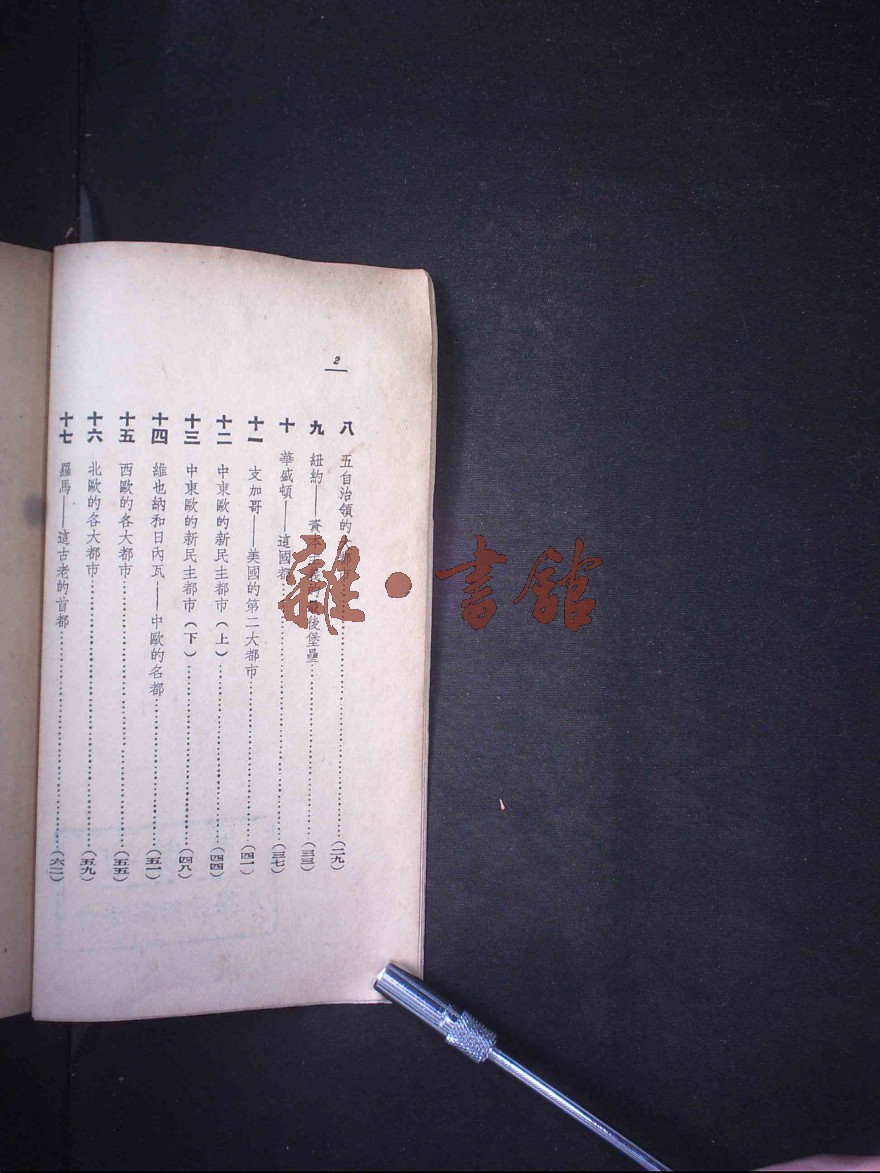 2
八 五自治領的……(二九)
九 紐約——資本主義的最後堡壘……(三三)
十 華盛頓——這國都……(三七)
十一 支加哥——美國的第二大都市……(四一)
十二 中東歐的新民主都市(上)……(四四)
十三 中東歐的新民主都市(下)……(四八)
十四 維也納和日內瓦——中歐的名都……(五一)
十五 西歐的各大都市……(五五)
十六 北歐的各大都市……(五九)
十七 羅馬——這古老的首都……(六二)
雜·書館